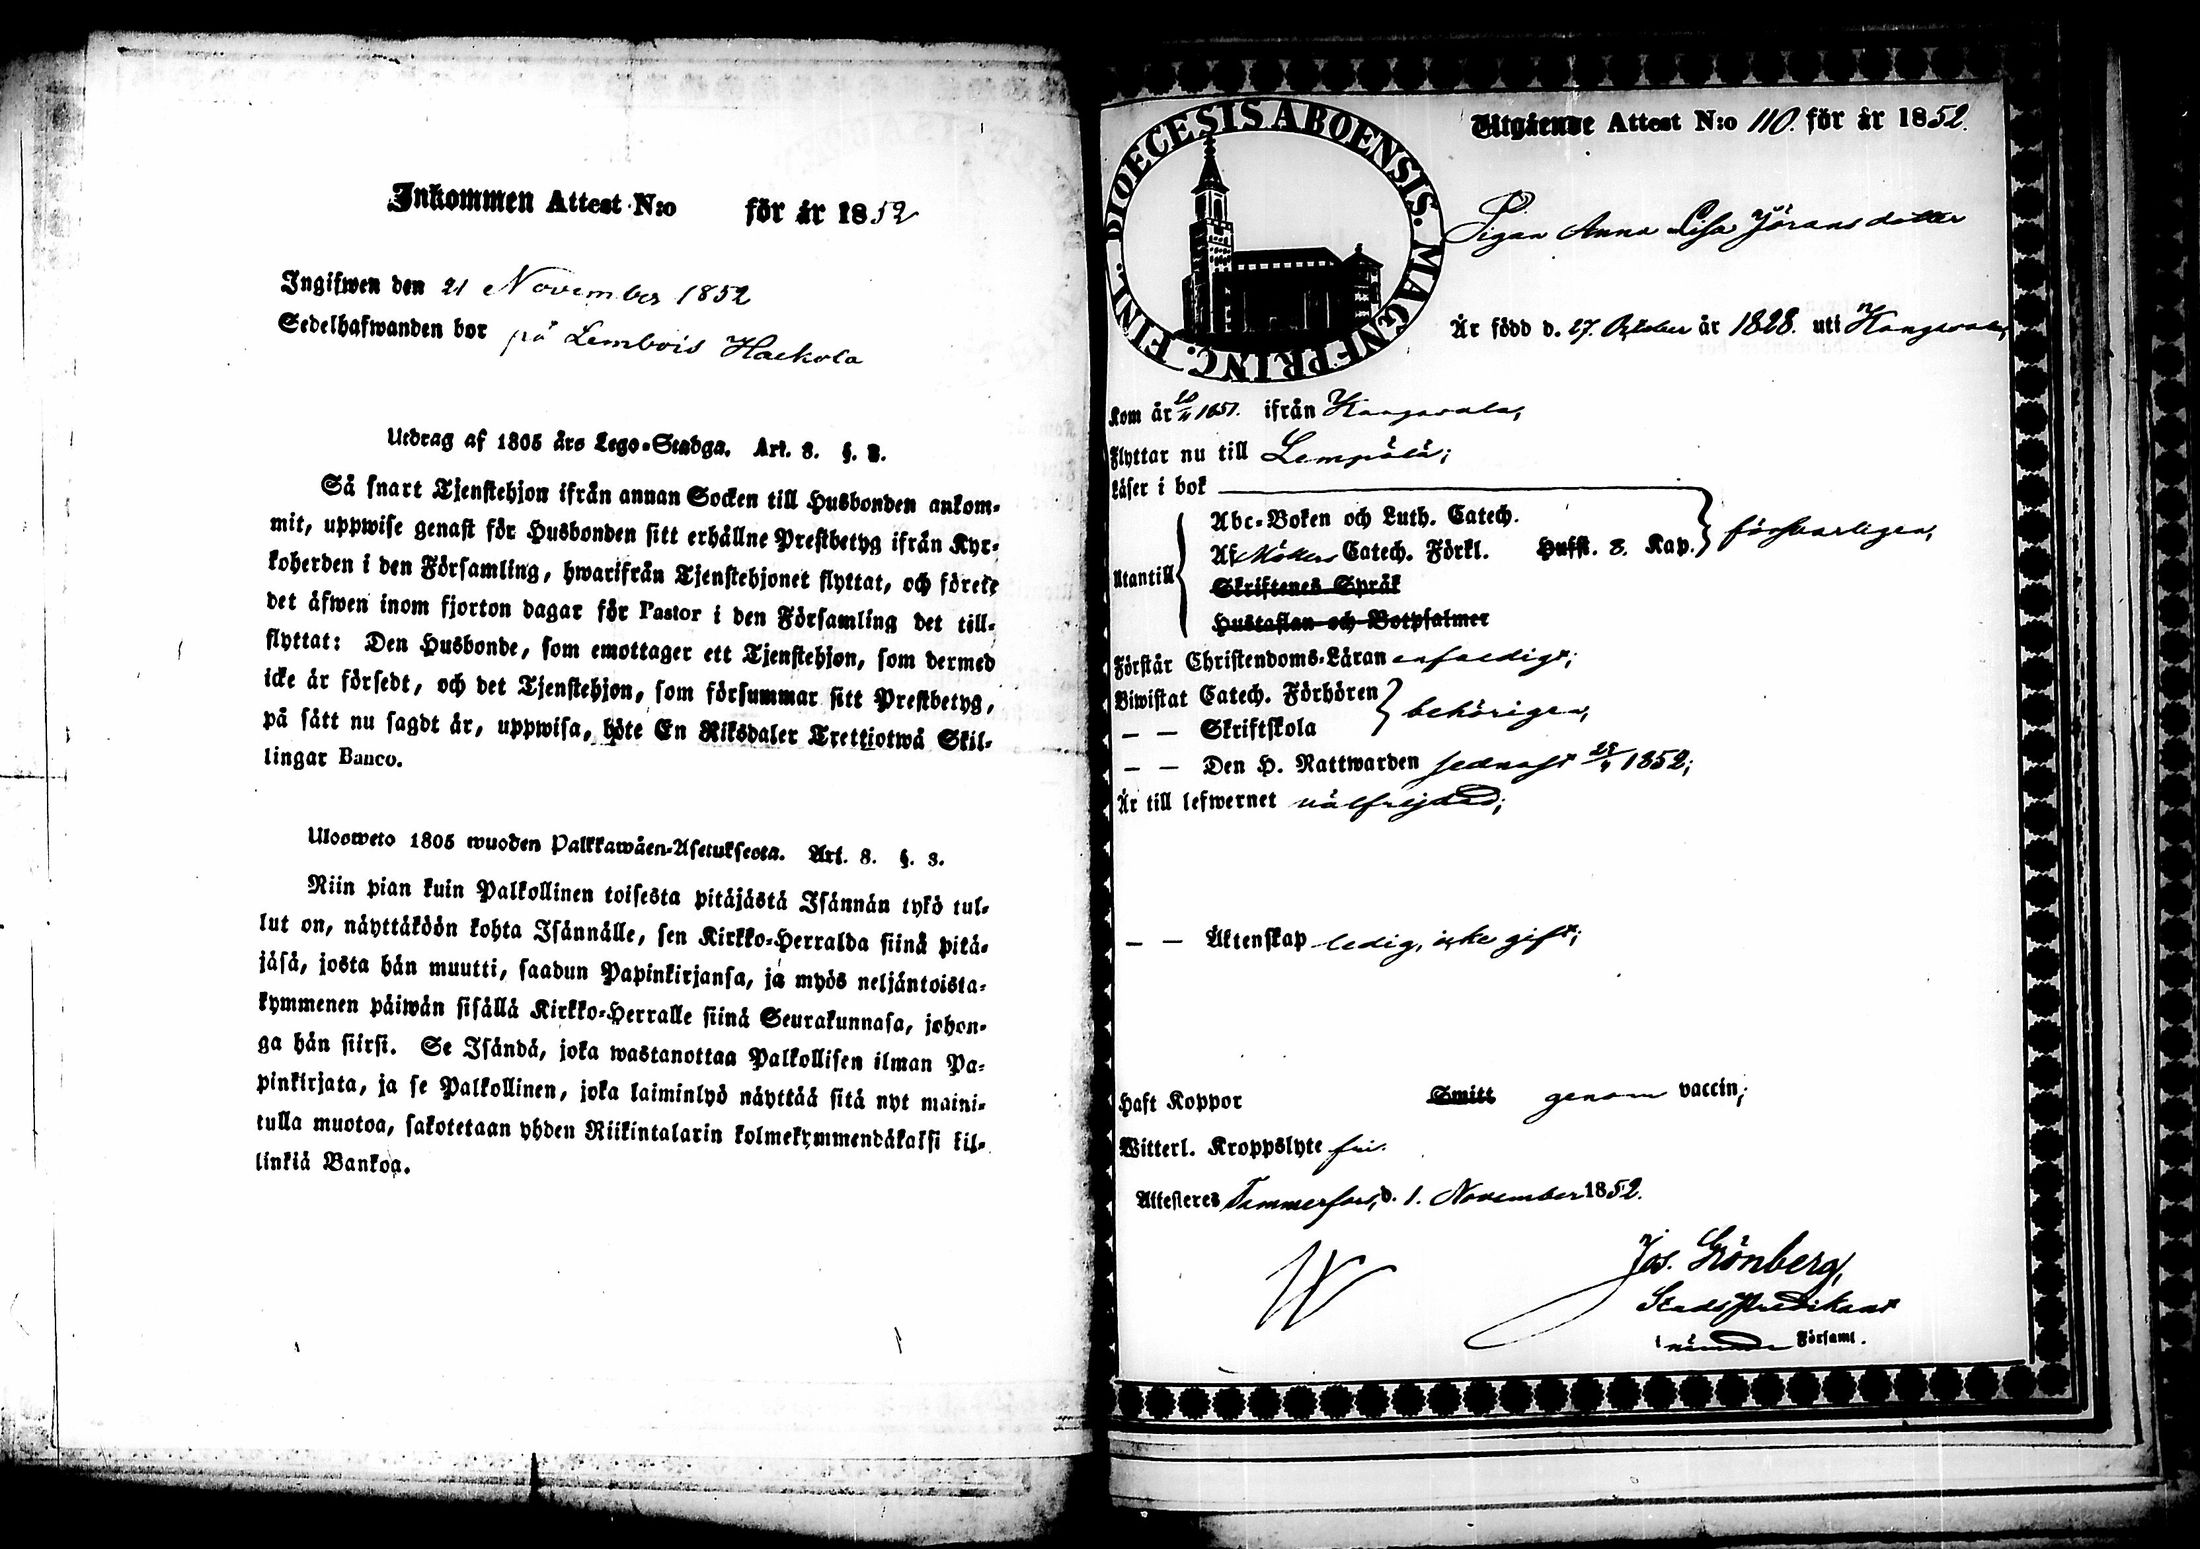 Inkommen Attest N:o för år 1852
Ingifwen den 21 November 1852
Sedelhafwanden bor på Lembois Haekola
Utdrag af 1805 års Lego-Stadga. Art. 8. §. 3.
Så snart Tjenstehjon ifrån annan Socken till Husbonden ankom-
mit, uppwise genast för Husbonden sitt erhållne Prestbetyg ifrån Kyr-
koherden i den Församling, hwarifrån Tjenstehjonet flyttat, och förete
det äfwen inom fjorton dagar för Pastor i den Församling det till-
flyttat: Den Husbonde, som emottager ett Tjenstehjon, som dermed
icke är försedt, och det Tjenstehjon, som försummar sitt Prestbetyg,
på sätt nu sagdt är, uppwisa, böte En Riksdaler Trettiotwå Skil-
lingar Banco.
Ulosweto 1805 wuoden Palkkawäen-Asetuksesta. Art. 8. §. 3.
Niin pian kuin Palkollinen toisesta pitäjästä Isännän tykö tul-
lut on, näyttäköön kohta Isännälle, sen Kirkko-Herralda siinä pitä-
jäsä, josta hän muutti, saadun Papinkirjansa, ja myös neljäntoista-
kymmenen päiwän sisällä Kirkko-Herralle siinä Seurakunnasa, johon-
ga hän siirsi. Se Isändä, joka wastanottaa Palkollisen ilman Pa-
pinkirjata, ja se Palkollinen, joka laiminlyö näyttää sitä nyt maini-
tulla muotoa, sakotetaan yhden Riikintalarin kolmekymmendäkaksi kil-
linkiä Bankoa.
DIOECESIS ABOENSIS. MAGNI PRINC. FINL.
Utgående Attest N:o 110. för år 1852.
Pigan Anna Lisa Jöransdotter
Är född d. 27. October år 1828. uti Kangasala,
Kom år 1851. ifrån Kangasala,
Flyttar nu till Lempälä;
Läser i bok
Utantill
Abc-Boken och Luth. Catech.
Af Möllers Catech. Förkl. Hufst. 8. Kap. försvarligen,
Skriftenes Språk
Hustaflan och Botpsalmer
Förstår Christendoms-Läran enfaldigt;
Biwistat Catech. Förhören
— — Skriftskola behörigen,
— — Den H. Nattwarden sednast 1852;
Är till lefwernet välfrejdad;
— — Äktenskap ledig, icke gift;
Haft Koppor Smitt genom vaccin;
Witterl. Kroppslyte fri.
Attesteres Tammerfors, d. 1. November 1852.
Jos. Grönberg,
Stads Predikant
i nämnde Församl.